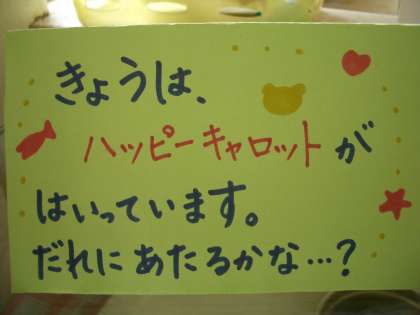 きょうは、
ハッピーキャロットが
はいっています。
だれにあたるかな…?